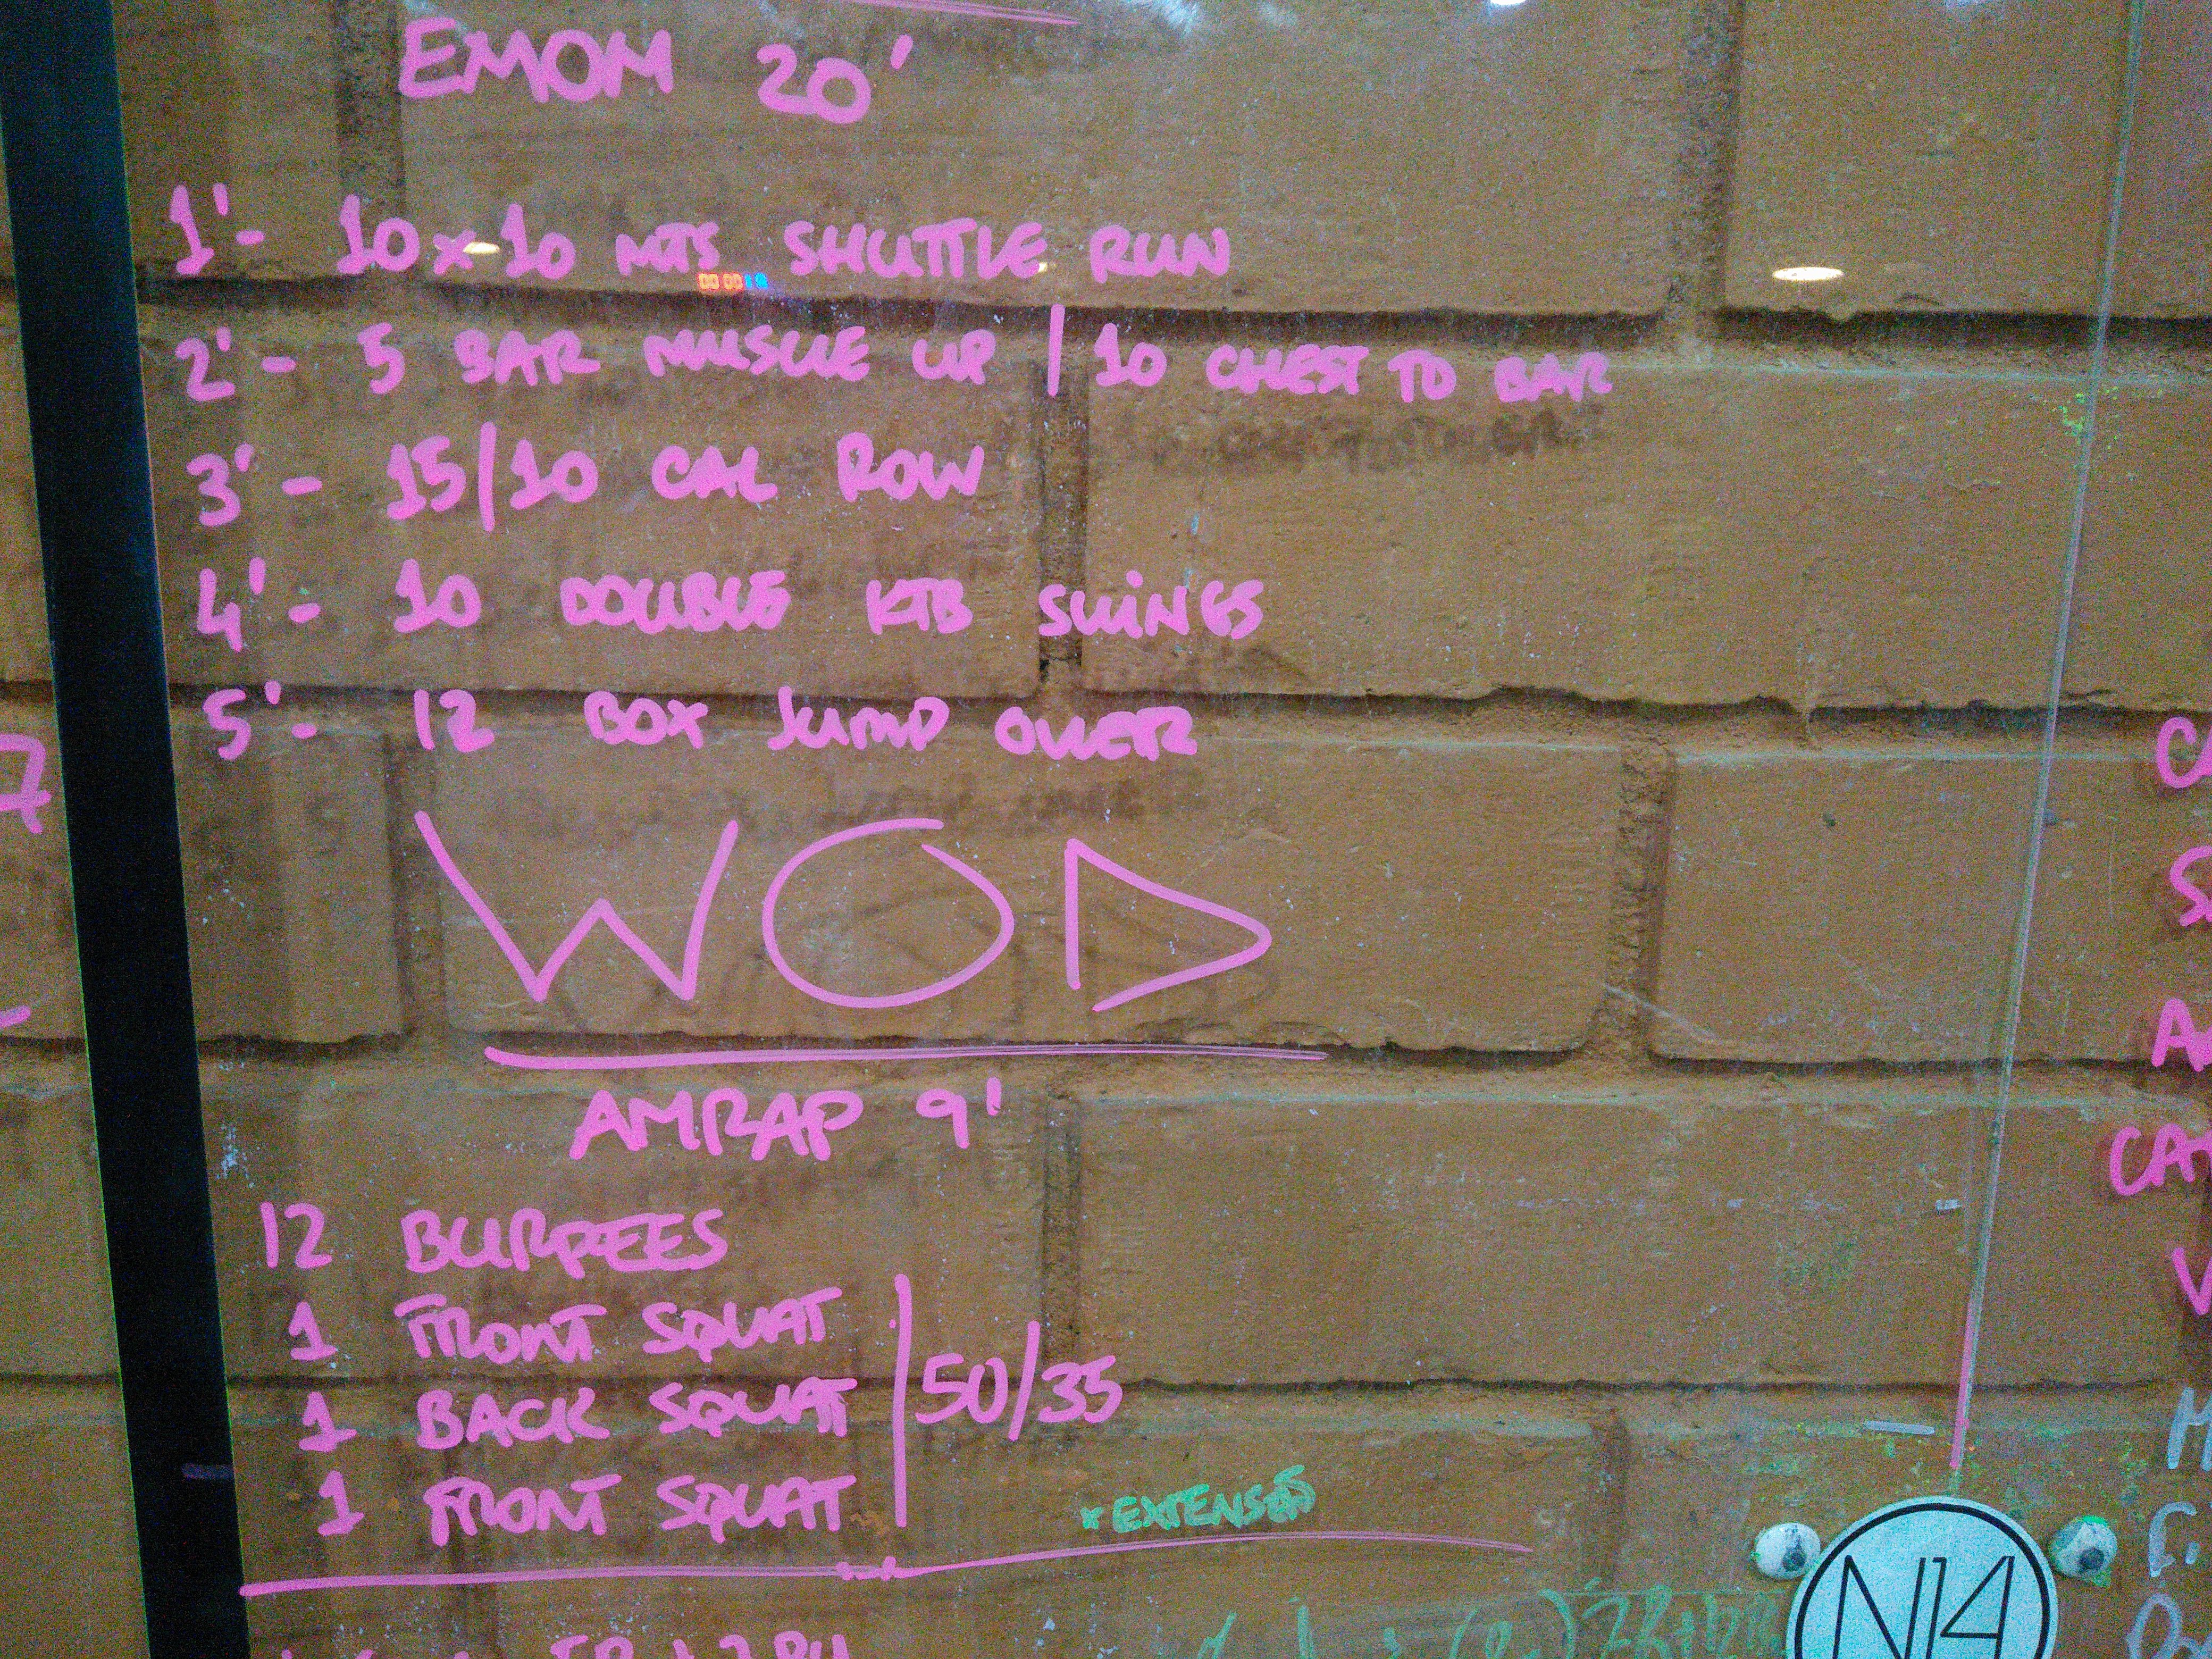 EMOM 20'
1'- 10x10 MTS SHUTTLE RUN
2'- 5 BAR MUSCLE UP | 10 CHEST TO BAR
3'- 15/10 CAL ROW
4'- 10 DOUBLE KTB SWINGS
5'- 12 BOX JUMP OVER
WOD
AMRAP 9'
12 BURPEES
1 FRONT SQUAT
1 BACK SQUAT 50/35
1 FRONT SQUAT
N14